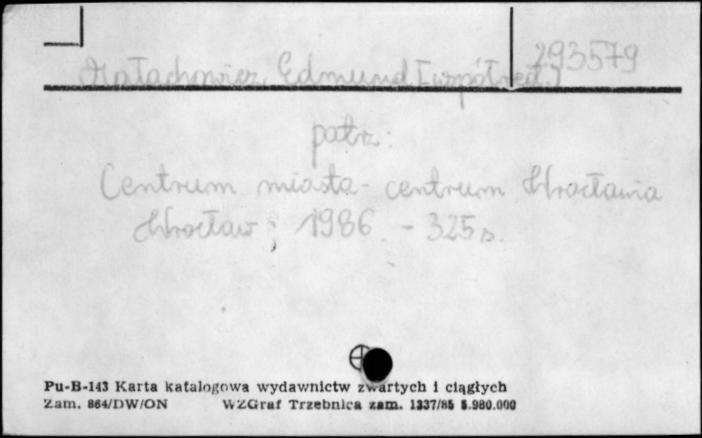 293579
Małachowicz, Edmund [współred.]
patrz:
Centrum miasta - centrum Wrocławia
Wrocław ; 1986. - 325 s.
Pu-B-143 Karta katalogowa wydawnictw zwartych i ciągłych
Zam. 864/DW/ON WZGraf Trzebnica zam. 1337/85 5.980.000